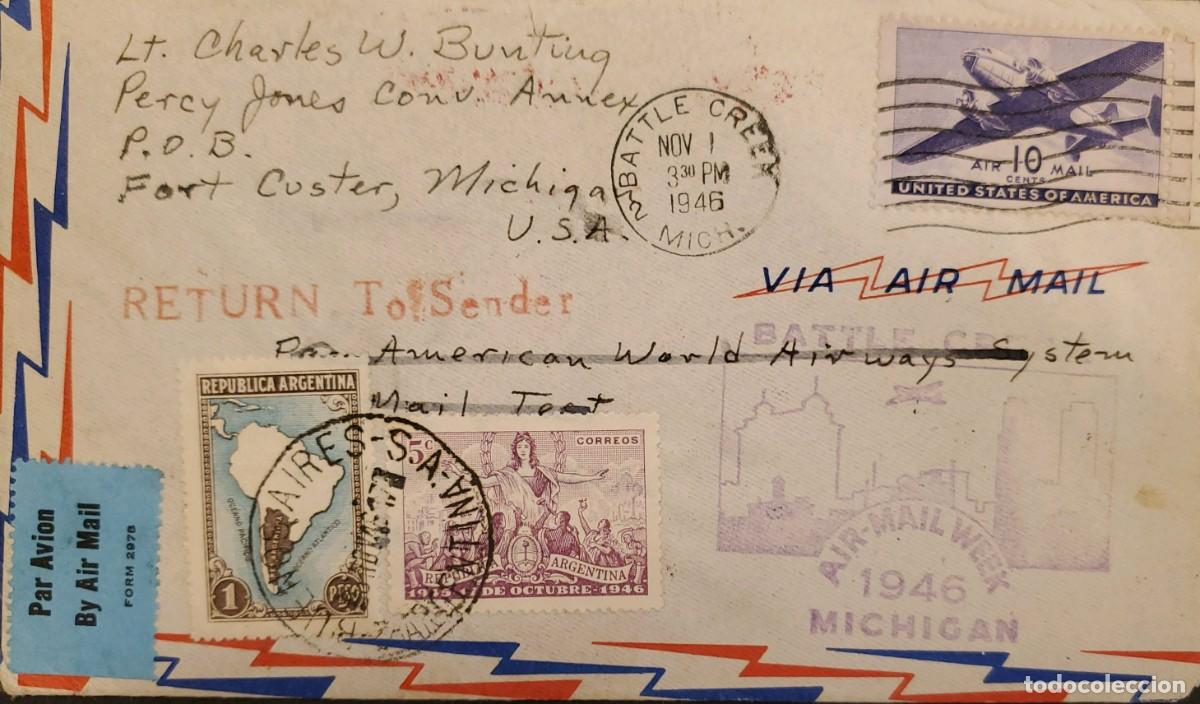 Lt. Charles W. Bunting
Percy Jones Conv. Annex
P.O.B.
Fort Custer, Michiga
U.S.A.
BATTLE CREEK
NOV 1
3 30 PM
1946
MICH.
2
AIR 10 MAIL
CENTS
UNITED STATES OF AMERICA
RETURN To Sender
VIA AIR MAIL
BATTLE CRE
Pan American World Airways System
Mail Text
REPUBLICA ARGENTINA
OCEANO PACIFICO
OCEANO ATLANTICO
1 PESO
AIRES-S.A-ARGENTINA
5c CORREOS
REPUBLICA ARGENTINA
DE OCTUBRE-1946
AIR-MAIL WEEK
1946
MICHIGAN
Par Avion
By Air Mail
FORM 2978
todocoleccion